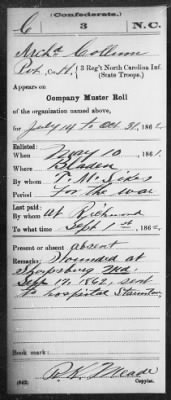 (Confederate.)
C 3 N.C.
Archd Collum
Pvt, Co. H, 3 Reg't North Carolina Inf.
(State Troops.)
Appears on
Company Muster Roll
of the organization named above,
for July 14 to Oct 31, 1862.
Enlisted:
When May 10, 1861.
Where Bladen
By whom T. M. Sikes
Period For the war
Last paid:
By whom W. Richmond
To what time Sept 1st, 1862.
Present or absent absent
Remarks: Wounded at
Sharpsburg Md.
Sept 17, 1862, sent
to hospital Staunton
Book mark:
R. K. Meade
(642) Copyist.